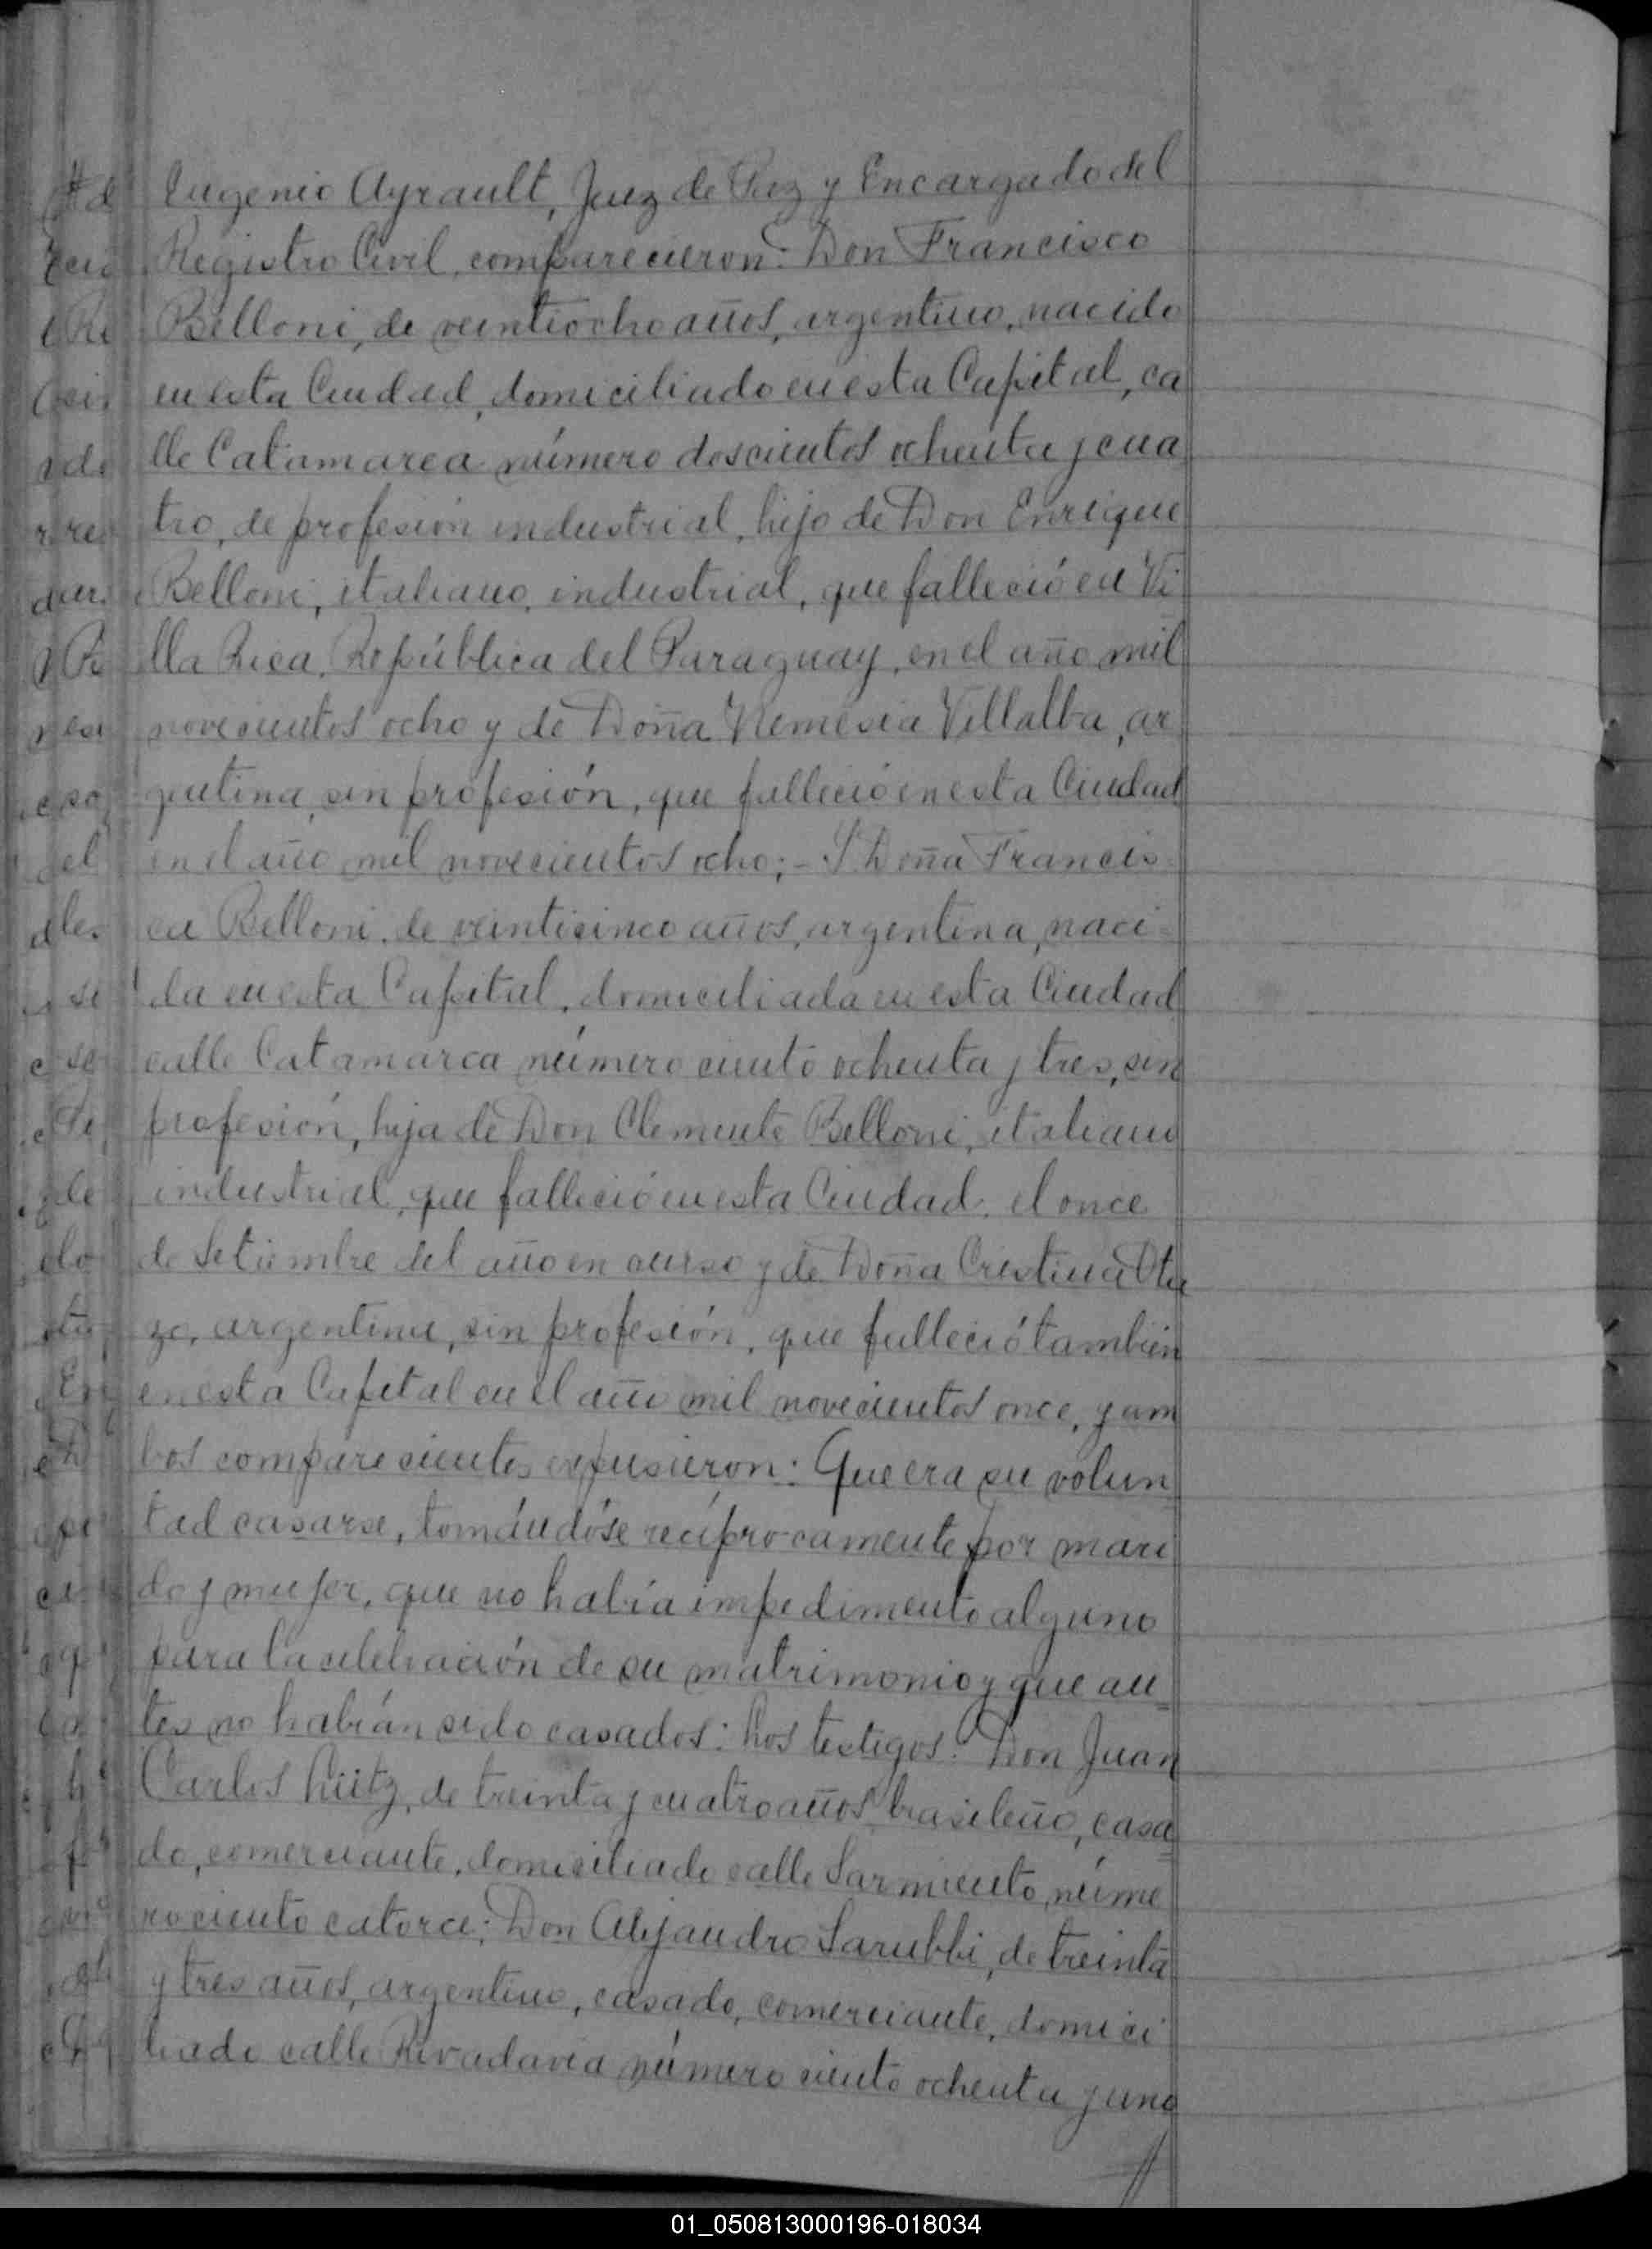 Eugenio Ayrault, Juez de Paz y Encargado del
Registro Civil, comparecieron: Don Francisco
Belloni, de veintiocho años, argentino, nacido
en esta Ciudad, domiciliado en esta Capital, ca
lle Catamarca número doscientos ochenta y cua
tro, de profesión industrial, hijo de Don Enrique
Belloni, italiano, industrial, que falleció en Vi
lla Rica, República del Paraguay, en el año mil
novecientos ocho y de Doña Nemesia Villalba, ar
gentina, sin profesión, que falleció en esta Ciudad
en el año mil novecientos ocho; - Y Doña Francis
ca Belloni, de veinticinco años, argentina, naci-
da en esta Capital, domiciliada en esta Ciudad
calle Catamarca número ciento ochenta y tres, sin
profesión, hija de Don Clemente Belloni, italiano
industrial, que falleció en esta Ciudad, el once
de Setiembre del año en curso y de Doña Cristina Ota
zo, argentina, sin profesión, que falleció también
en esta Capital en el año mil novecientos once, y am
bos comparecientes expusieron: Que era su volun
tad casarse, tomándose recíprocamente por mari
do y mujer, que no había impedimento alguno
para la celebración de su matrimonio y que an-
tes no habían sido casados: Los testigos: Don Juan
Carlos de treinta y cuatro años brasileño, casa
do, comerciante, domiciliado calle Sarmiento, núme
ro ciento catorce; Don Alejandro Sarubbi, de treinta
y tres años, argentino, casado, comerciante, domici
liado calle Rivadavia número ciento ochenta y uno
01_050813000196-018034